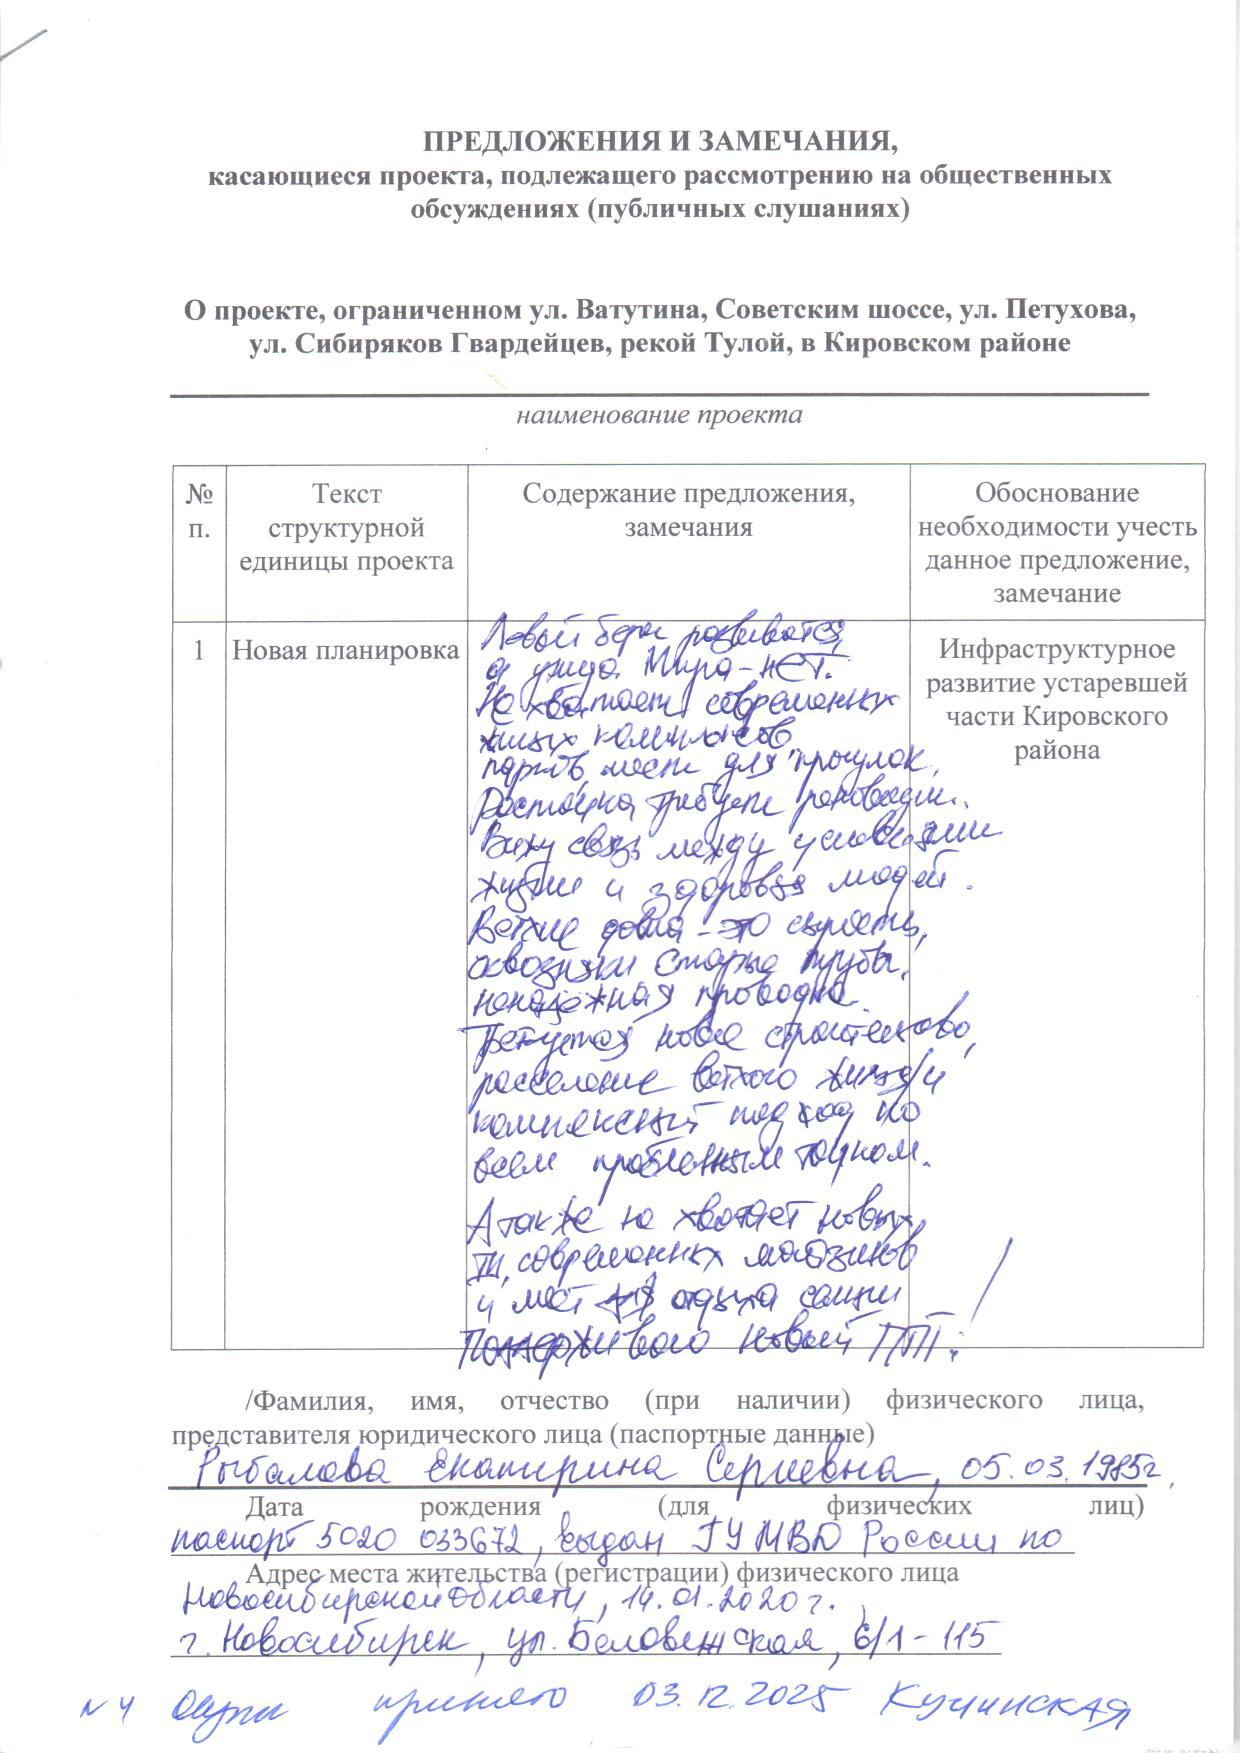 ПРЕДЛОЖЕНИЯ И ЗАМЕЧАНИЯ,
касающиеся проекта, подлежащего рассмотрению на общественных
обсуждениях (публичных слушаниях)
О проекте, ограниченном ул. Ватутина, Советским шоссе, ул. Петухова,
ул. Сибиряков Гвардейцев, рекой Тулой, в Кировском районе
наименование проекта
№
п.
Текст
структурной
единицы проекта
Содержание предложения,
замечания
Обоснование
необходимости учесть
данное предложение,
замечание
1
Новая планировка
Левый берег развивается,
а улица Мира - нет.
Не хватает современных
жилых комплексов
парков, мест для прогулок.
Расточка требует реновации.
Вижу связь между условиями
жизни и здоровья людей.
Ветхие дома - это сырость,
сквозняки старые трубы,
ненадежная проводка.
Требуется новое строительство,
расселение ветхого жилья и
комплексный подход по
всем проблемным точкам.
А также не хватает новых
ТЦ, современных магазинов
и мест для отдыха семьи
Поддерживаю новый ППТ.
Инфраструктурное
развитие устаревшей
части Кировского
района
/Фамилия, имя, отчество (при наличии) физического лица,
представителя юридического лица (паспортные данные)
Рыбалова Екатерина Сергеевна, 05.03.1985г,
Дата рождения (для физических лиц)
паспорт 5020 033672, выдан ГУ МВД России по
Адрес места жительства (регистрации) физического лица
Новосибирской области, 14.01.2020 г.
г. Новосибирск, ул. Беловежская, 6/1 - 115
№ 4 принято 03.12.2025 Кучинская